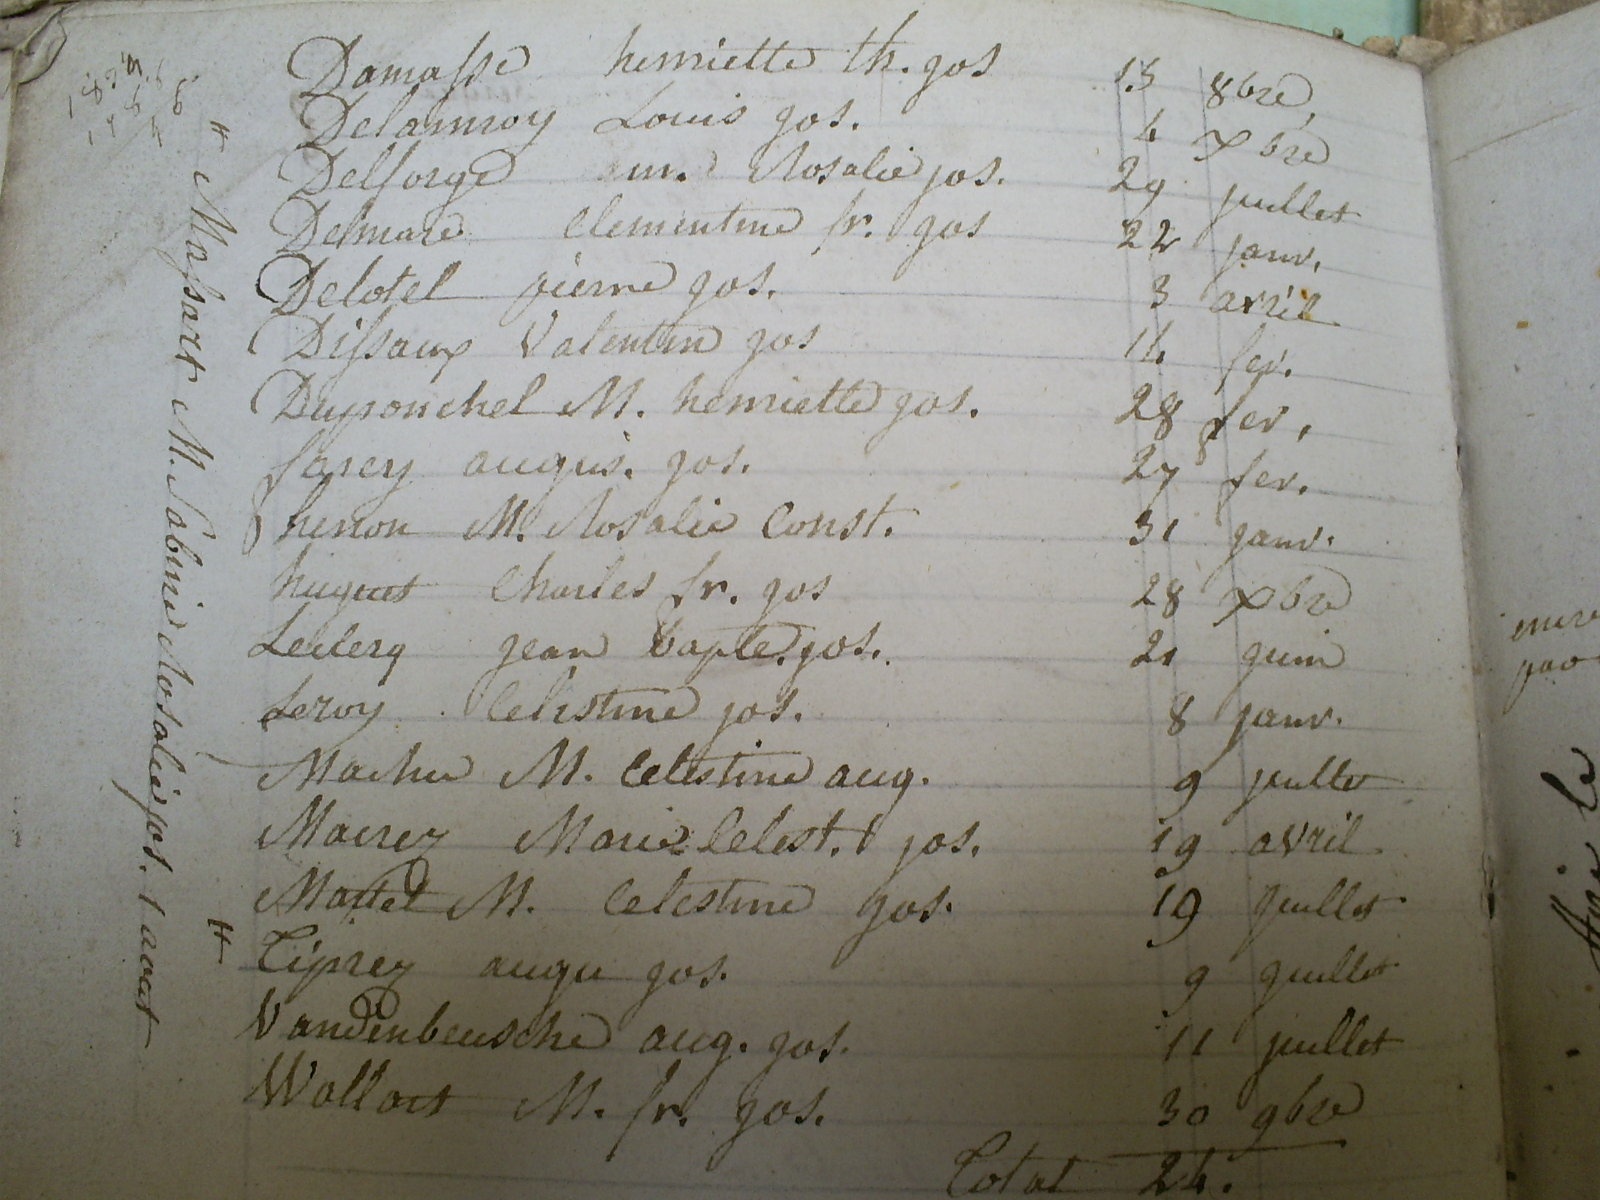 Damasse henriette th. jos 13 8bre
Delannoy Louis jos. 4 xbre
Delforge Rosalie jos. 29 juillet
Delmare Clementine fr. jos 22 janv.
Delotel pierre jos. 3 avril
Dissaux Valentin jos 14 fev.
Duponchel M. henriette jos. 28 fev.
farey augus. jos. 27 fev.
henon M. Rosalie Const. 31 janv.
hugues Charles fr. jos 28 xbre
Leclerq jean bapte. jos. 21 juin
Leroy Celestine jos. 8 janv.
Machu M. Celestine aug. 9 juillet
Mairey Marie Celest. jos. 19 avril
Martel M. Celestine jos. 19 juillet
Tiprey augu jos. 9 juillet
Vandenbeusche aug. jos. 11 juillet
Wallart M. fr. jos. 30 9bre
Total 24.
# Massart M. Sabine Rosalie jos. 1 aout #